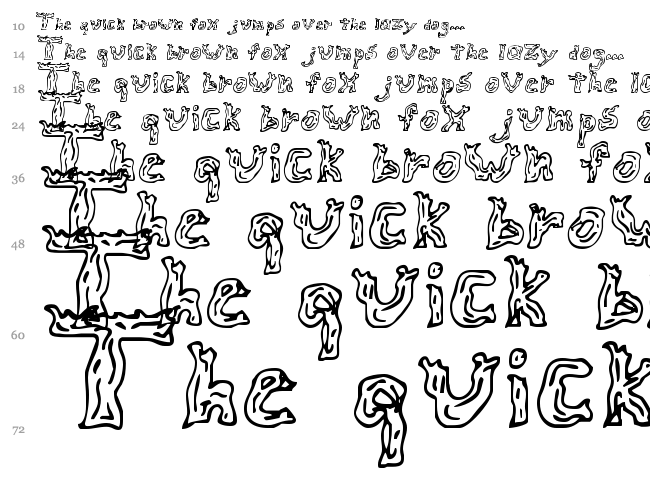 10 The quick brown fox jumps over the lazy dog...
14 The quick brown fox jumps over the lazy dog...
18 The quick brown fox jumps over the l
24 The quick brown fox jumps o
36 The quick brown fo
48 The quick brow
60 The quick b
72 The quick